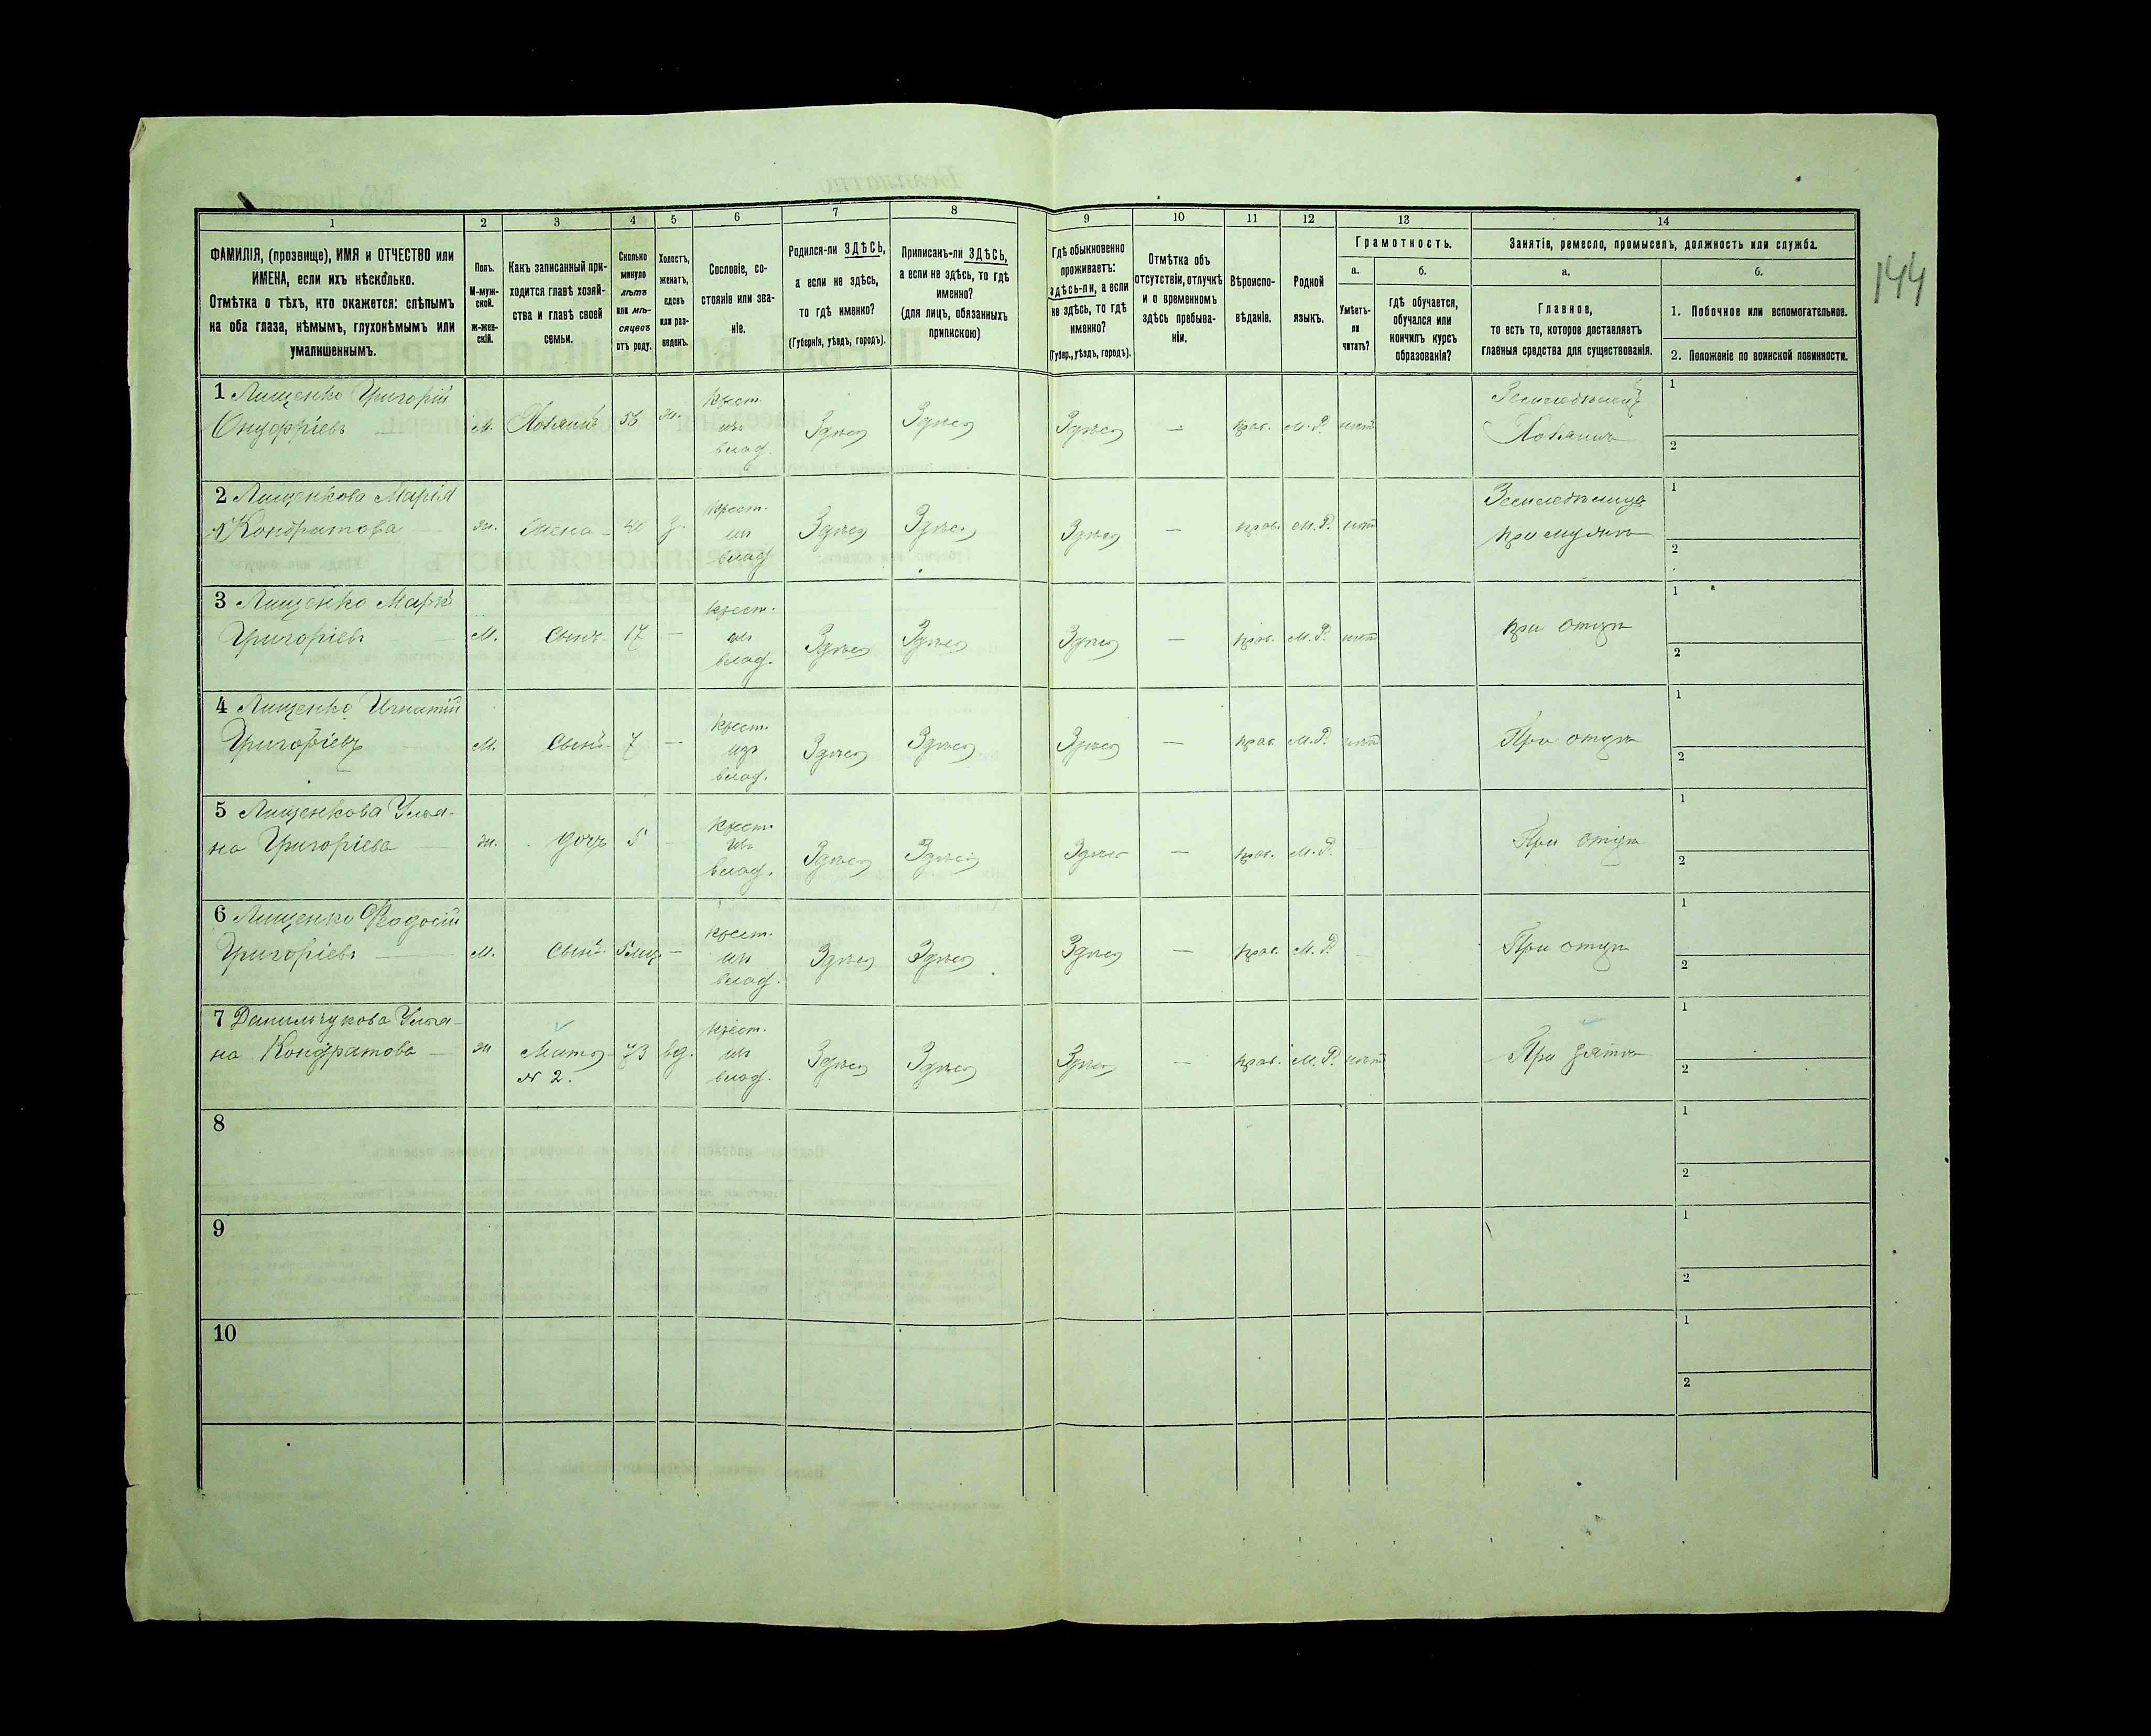 144
1
2
3
4
5
6
7
8
9
10
11
12
13
14
ФАМИЛІЯ, (прозвище), ИМЯ и ОТЧЕСТВО или
ИМЕНА, если ихъ нѣсколько.
Отмѣтка о тѣхъ, кто окажется: слѣпымъ
на оба глаза, нѣмымъ, глухонѣмымъ или
умалишеннымъ.
Полъ.
М-муж-
ской.
ж-жен-
скій.
Какъ записанный при-
ходится главѣ хозяй-
ства и главѣ своей
семьи.
Сколько
минуло
лѣтъ
или мѣ-
сяцевъ
отъ роду.
Холостъ,
женатъ,
вдовъ
или раз-
веденъ.
Сословіе, со-
стояніе или зва-
ніе.
Родился-ли ЗДѢСЬ,
а если не здѣсь,
то гдѣ именно?
(Губернія, уѣздъ, городъ).
Приписанъ-ли ЗДѢСЬ,
а если не здѣсь, то гдѣ
именно?
(для лицъ, обязанныхъ
припискою)
Гдѣ обыкновенно
проживаетъ:
здѣсь-ли, а если
не здѣсь, то гдѣ
именно?
(Губер., уѣздъ, городъ).
Отмѣтка объ
отсутствіи, отлучкѣ
и о временномъ
здѣсь пребыва-
ніи.
Вѣроиспо-
вѣданіе.
Родной
языкъ.
Грамотность.
а.
Умѣетъ-
ли
читать?
б.
гдѣ обучается,
обучался или
кончилъ курсъ
образованія?
Занятіе, ремесло, промыселъ, должность или служба.
а.
Главное,
то есть то, которое доставляетъ
главныя средства для существованія.
б.
1. Побочное или вспомогательное.
2. Положеніе по воинской повинности.
1 Лищенко Григорій
Онуфріевъ
м. Хозяинъ 56 ж.
крест.
изъ
влад.
Здѣсь Здѣсь Здѣсь — прав. М.Р. нѣтъ
Земледѣлецъ
Хозяинъ
1
2
2 Лищенкова Марія
Кондратова
ж. жена
крест.
изъ
влад.
Здѣсь Здѣсь Здѣсь — прав. М.Р. нѣтъ
Земледѣлица
при мужѣ
1
2
3 Лищенко Марко
Григоріевъ
М. Сынъ 17 —
крест.
изъ
влад.
Здѣсь Здѣсь Здѣсь — прав. М.Р. нѣтъ
при отцѣ
1
2
4 Лищенко Игнатій
Григоріевъ
М. Сынъ 7 —
крест.
изъ
влад.
Здѣсь Здѣсь Здѣсь — прав. М.Р. нѣтъ
При отцѣ
1
2
5 Лищенкова Улья-
на Григоріева
ж. дочь 5 —
крест.
изъ
влад.
Здѣсь Здѣсь Здѣсь — прав. М.Р.
При отцѣ
1
2
6 Лищенко Феодосій
Григоріевъ
М. Сынъ 5 мѣц —
крест.
изъ
влад.
Здѣсь Здѣсь Здѣсь — прав. М.Р.
При отцѣ
1
2
7 Данильчукова Улья-
на Кондратова
ж Мать 73 вд.
№ 2.
крест.
изъ
влад.
Здѣсь Здѣсь Здѣсь — прав. М.Р. нѣтъ
При зятѣ
1
2
8
1
2
9
1
2
10
1
2